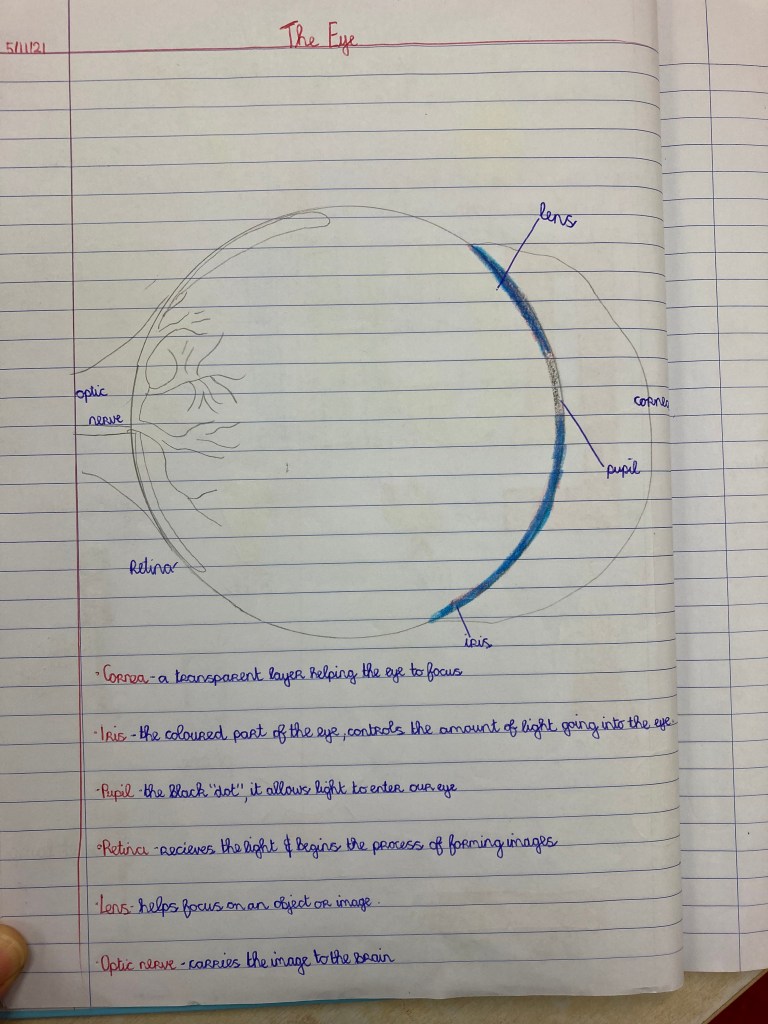 The Eye
5/11/21
lens
optic
nerve
cornea
pupil
Retina
iris
·Cornea - a transparent layer helping the eye to focus
·Iris - the coloured part of the eye, controls the amount of light going into the eye.
·Pupil - the black "dot", it allows light to enter our eye
·Retina - recieves the light & begins the process of forming images
·Lens - helps focus on an object or image.
·Optic nerve - carries the image to the brain